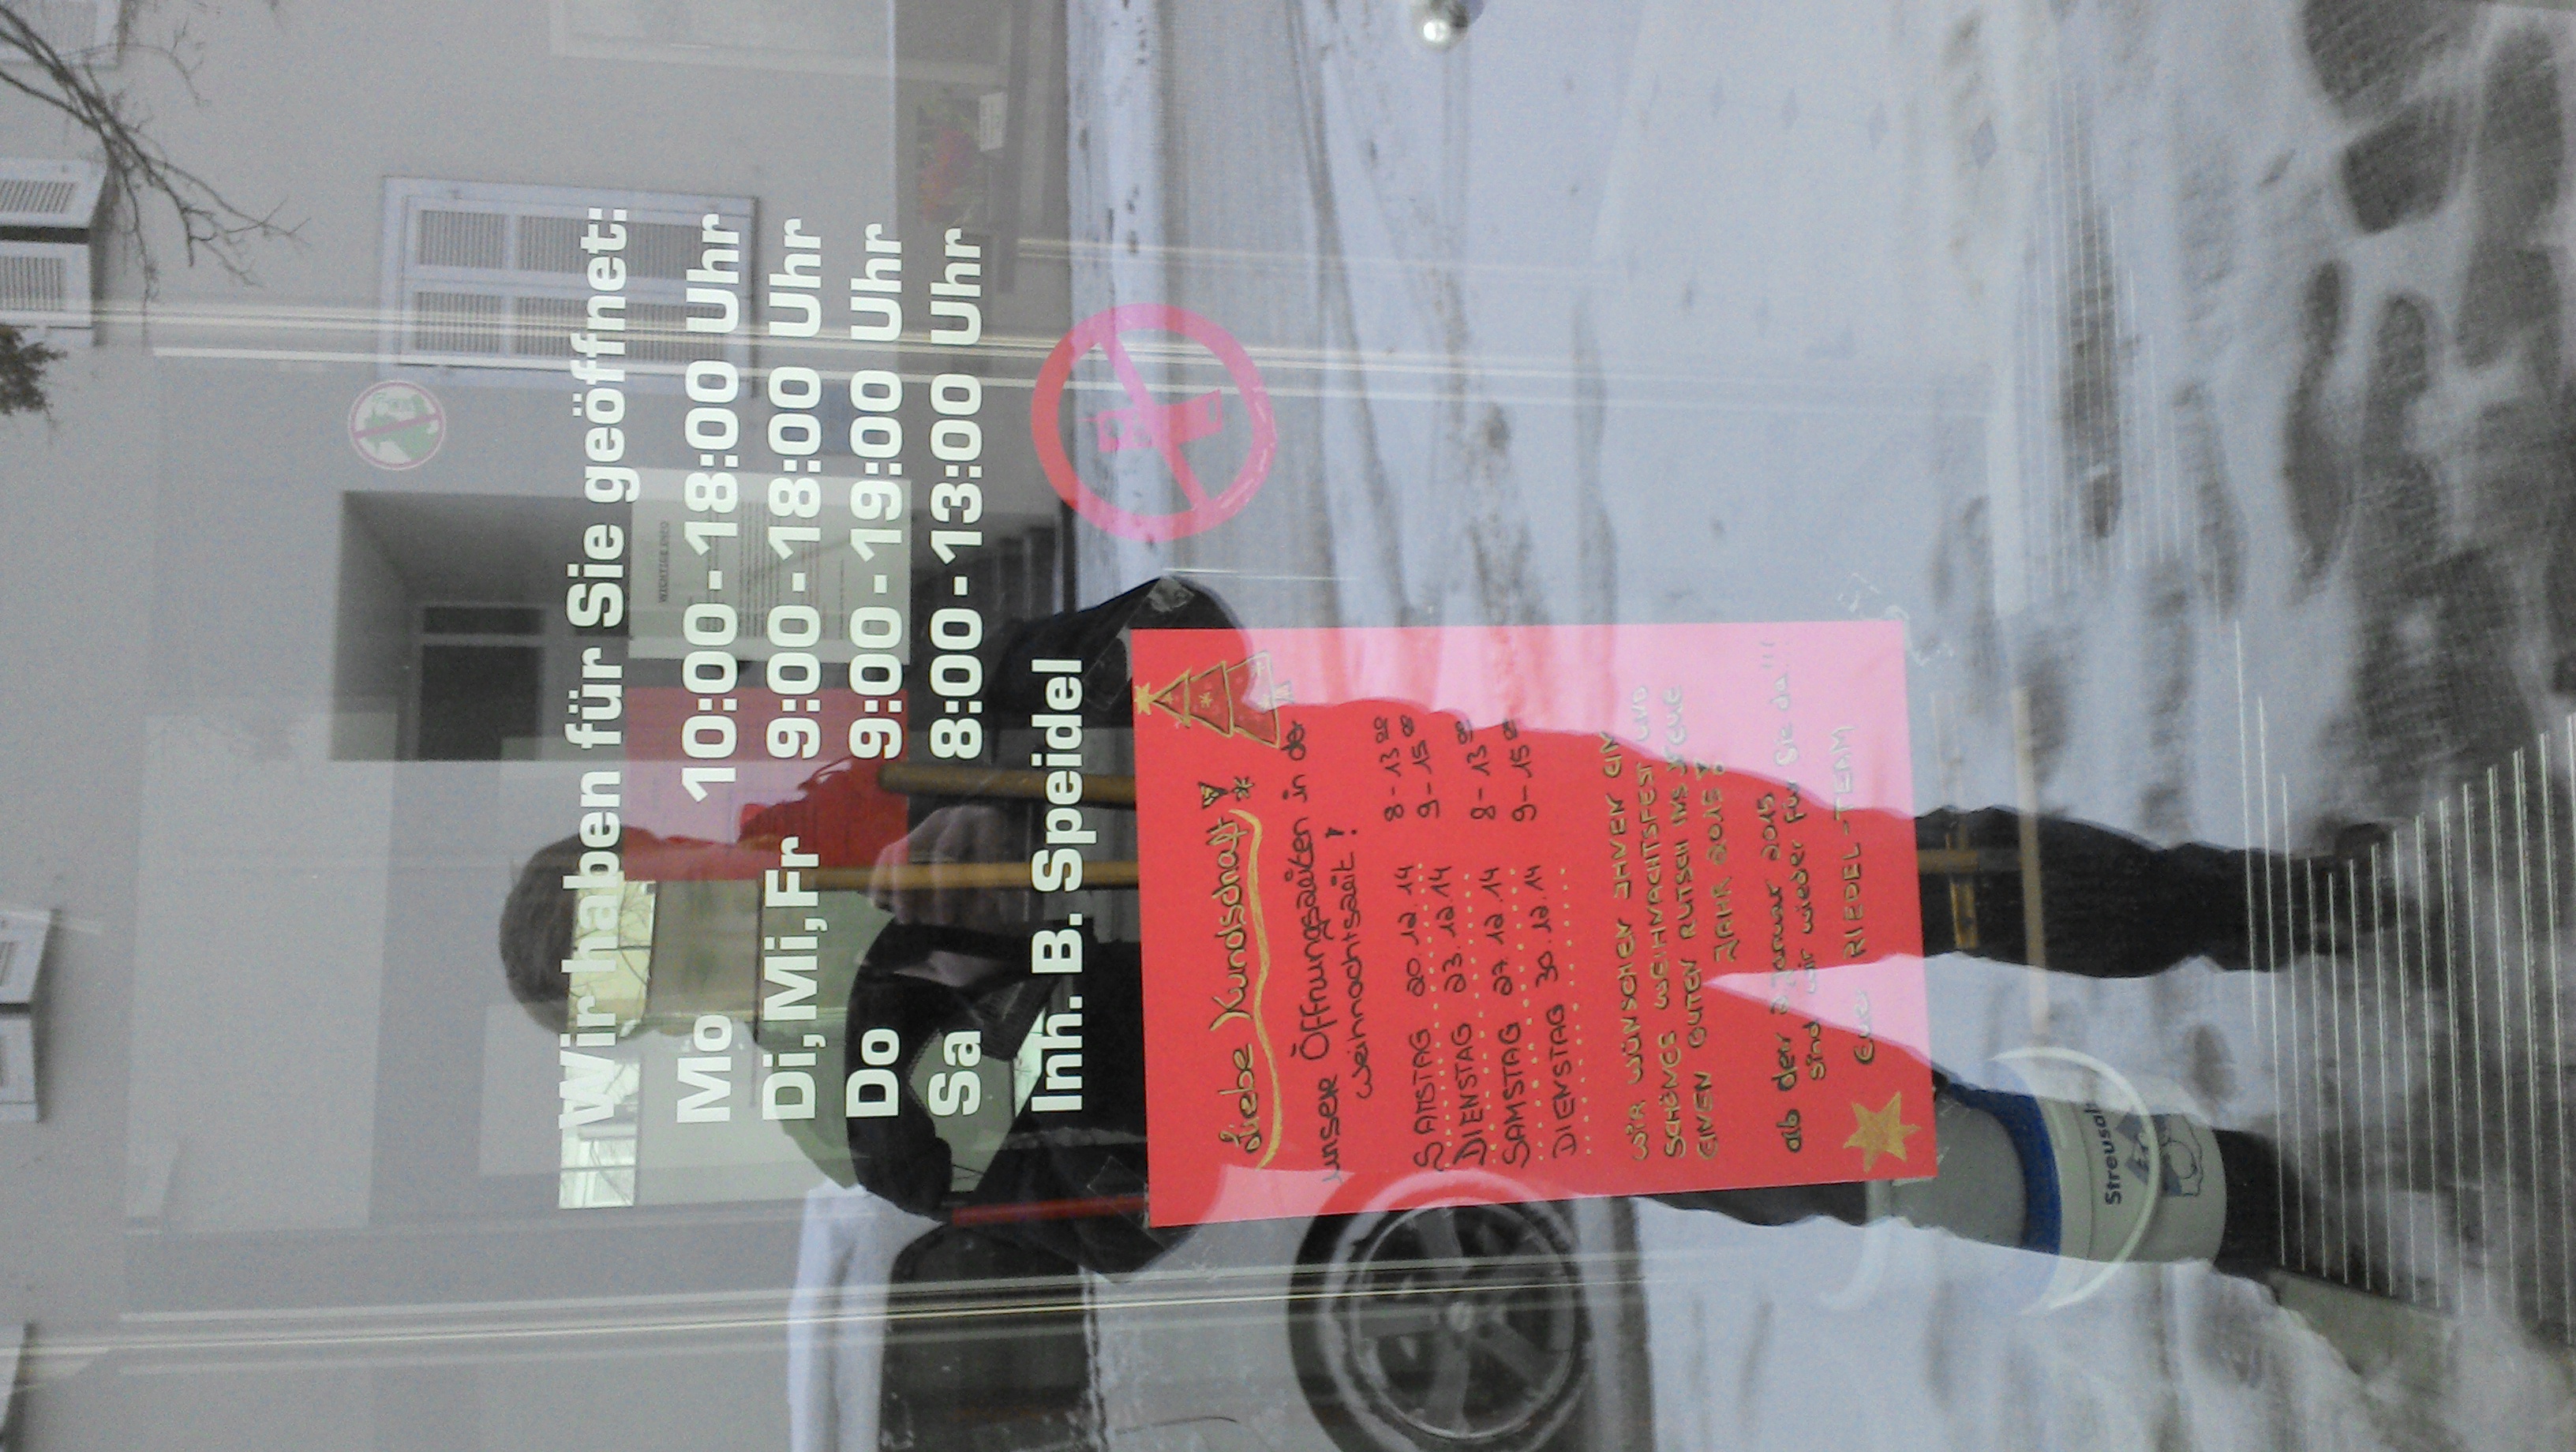 WICHTIGE INFO
Wir haben für Sie geöffnet:
Mo 10:00 - 18:00 Uhr
Di, Mi, Fr 9:00 - 18:00 Uhr
Do 9:00 - 19:00 Uhr
Sa 8:00 - 13:00 Uhr
Inh. B. Speidel
Liebe Kundschaft!
unsere Öffnungszeiten in der
Weihnachtszeit!
SAMSTAG 20.12.14 8-13 00
DIENSTAG 23.12.14 9-15 00
SAMSTAG 27.12.14 8-13 00
DIENSTAG 30.12.14 9-15 00
WIR WÜNSCHEN IHNEN EIN
SCHÖNES WEIHNACHTSFEST UND
EINEN GUTEN RUTSCH INS NEUE
JAHR 2015!
ab den 2 Januar 2015
sind wir wieder für Sie da!!!
Euer RIEDEL-TEAM
Streusalz